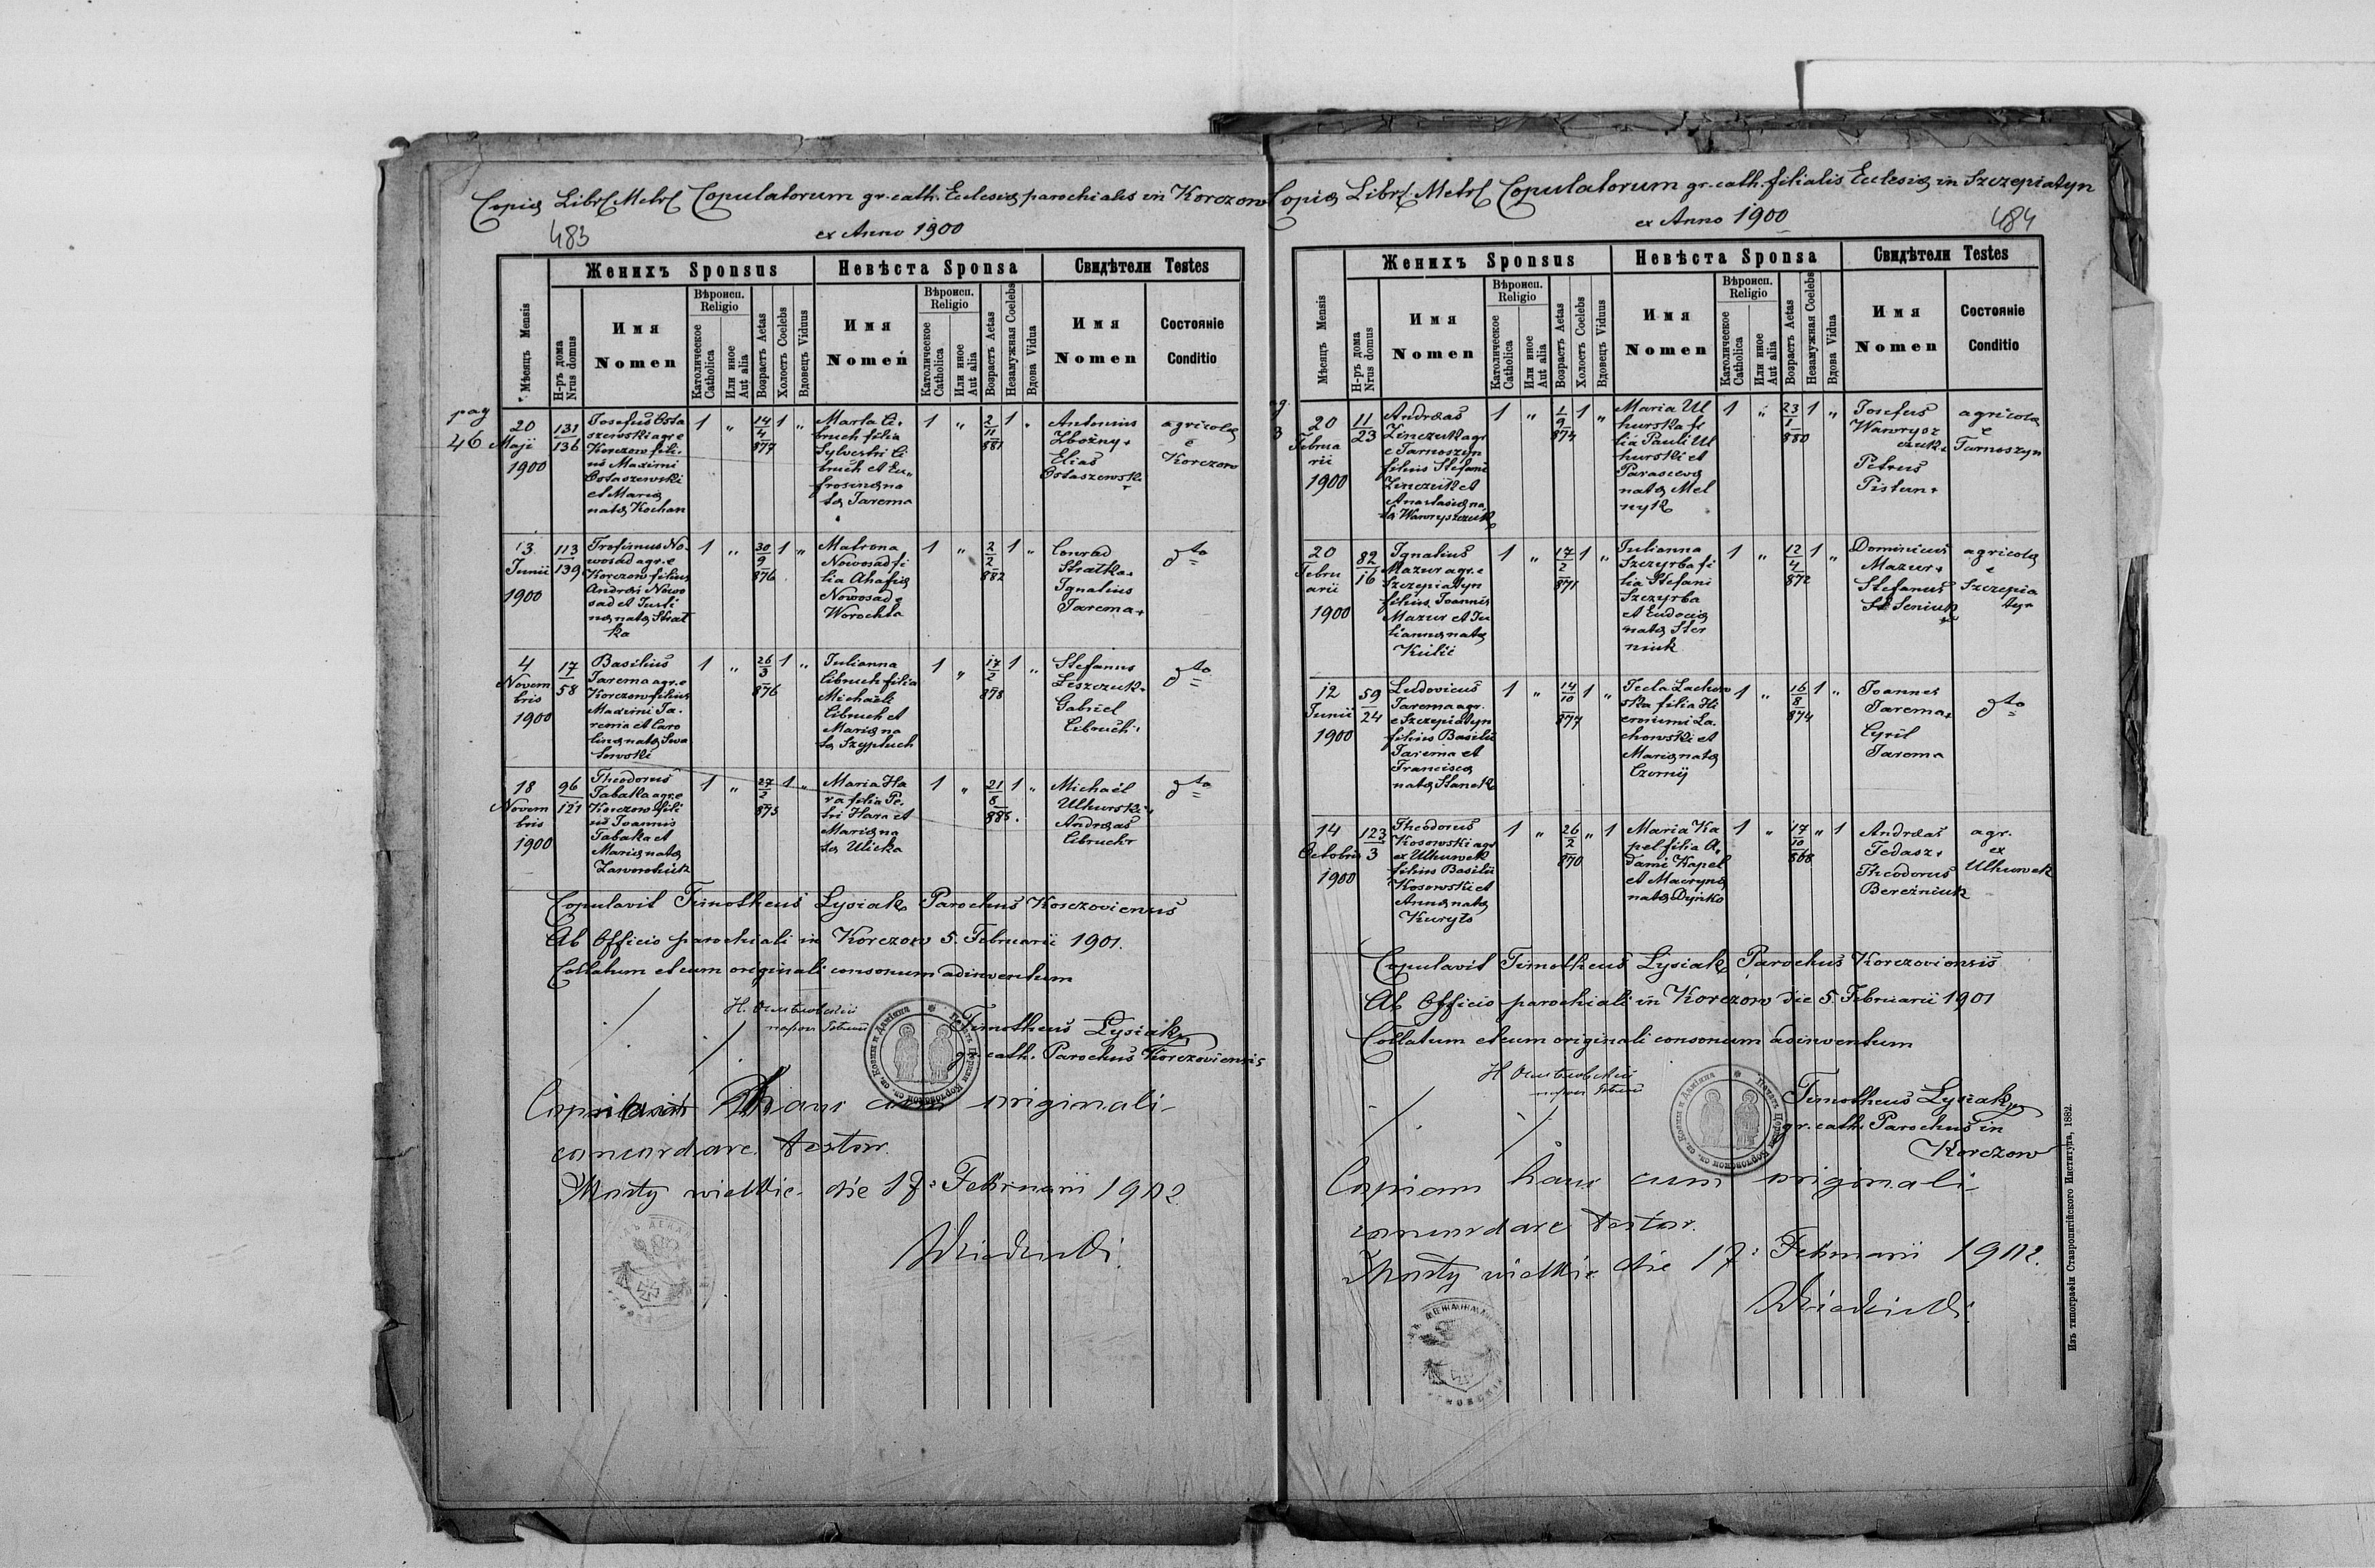 Copia Libri Metr. Copulatorum gr. cath. Ecclesiæ parochialis in Korczow
ex Anno 1900
483
Женихъ Sponsus
Невѣста Sponsa
Свидѣтели Testes
Мѣсяцъ Mensis
Н-ръ дома
Nrus domus
Имя
Nomen
Вѣроисп.
Religio
Католическое
Catholica
Или иное
Aut alia
Возрастъ Aetas
Холостъ Coelebs
Вдовецъ Viduus
Имя
Nomen
Вѣроисп.
Religio
Католическое
Catholica
Или иное
Aut alia
Возрастъ Aetas
Незамужная Coelebs
Вдова Vidua
Имя
Nomen
Состояніе
Conditio
pag
46
20
Maji
1900
131
136
Josefus Osta
szewski agr. e
Korczow fili-
us Maximi
Ostaszewski
et Mariæ
natæ Kochan
1 „ 14/4 877 1 „
Marta Ci-
bruch filia
Sylvestri Ci
bruch et Eu-
frosinæ na
tæ Jarema
1 „ 2/11 881 1 „
Antonius
Zbożny +
Elias
Ostaszewski
+
agricolæ
e
Korczow
13
Junii
1900
113
139
Trofimus No-
wosad agr. e
Korczow filius
Andreæ Nowo
sad et Justi
næ natæ Strat
ka
1 „ 30/9 876 1 „
Matrona
Nowosad fi
lia Ahafiæ
Nowosad e
Worochta
1 „ 2/2 882 1 „
Conrad
Stratka +
Ignatius
Jarema +
dto
4
Novem
bris
1900
17
58
Basilius
Jarema agr. e
Korczow filius
Maximi Ja-
rema et Caro
linæ natæ
1 „ 26/3 876 1 „
Julianna
Cibruch filia
Michaeli
Cibruch et
Mariæ na
tæ Szypluch
1 „ 17/2 878 1 „
Stefanus
Leszczuk +
Gabriel
Cibruch +
dto
18
Novem
bris
1900
96
121
Theodorus
Tabaka agr. e
Korczow fili
us Joannis
Tabaka et
Mariæ natæ
1 „ 27/2 875 1 „
Maria Ha
ra filia Pe-
tri Hara et
Mariæ na
tæ Ulicka
1 „ 21/8 885 1 „
Michaël
Uhurski +
Andreas
Cibruch +
dto
Copulavit Timotheus Lysiak Parochus Korczoviensis
Ab Officio parochiali in Korczow 5. Februarii 1901.
Collatum et cum originali consonum adinventum
Timotheus Lysiak
gr. cath. Parochus Korczoviensis
Copiam hanc cum originali
concordare testor.
Mosty wielkie die 17: Februarii 1902
Copia Libri Metr. Copulatorum gr. cath. filialis Ecclesiæ in Szczepiatyn
ex Anno 1900
484
Женихъ Sponsus
Невѣста Sponsa
Свидѣтели Testes
Мѣсяцъ Mensis
Н-ръ дома
Nrus domus
Имя
Nomen
Вѣроисп.
Religio
Католическое
Catholica
Или иное
Aut alia
Возрастъ Aetas
Холостъ Coelebs
Вдовецъ Viduus
Имя
Nomen
Вѣроисп.
Religio
Католическое
Catholica
Или иное
Aut alia
Возрастъ Aetas
Незамужная Coelebs
Вдова Vidua
Имя
Nomen
Состояніе
Conditio
20
Februa
rii
1900
11
23
Andreas
Zinczuk agr
e Tarnoszyn
filius Stefani
Zinczuk et
Anastasiæ na
tæ Wawryszczuk
1 „ 1/9 874 1 „
Maria Ul
hurska fi
lia Pauli Ul
hurski et
Parascevæ
natæ Mel
nyk
1 „ 23/1 880 1 „
Josefus
Wawrysz
czuk +
Petrus
Pistun +
agricolæ
e
Tarnoszyn
20
Febru
arii
1900
82
16
Ignatius
Mazur agr. e
Szczepiatyn
filius Joannis
Mazur et Ju
liannæ natæ
Kulii
1 „ 17/2 871 1 „
Julianna
Szczyrba fi
lia Stefani
Szczyrba
et Eudociæ
natæ Ster
niuk
1 „ 12/4 872 1 „
Dominicus
Mazur +
Stefanus
Seniuk
agricolæ
e
Szczepia
tyn
12
Junii
1900
59
24
Ludovicus
Jarema agr.
e Szczepiatyn
filius Basilii
Jarema et
Franciscæ
natæ Stanek
1 „ 14/10 877 1 „
Tecla Lachow
ska filia Hi
eronimi La-
chowski et
Mariæ natæ
Czornij
1 „ 16/8 874 1 „
Joannes
Jarema +
Cyril
Jarema
dto
14
Octobris
1900
123
3
Theodorus
Kosowski agr
ex Uhnuwek
filius Basilii
Kosowski et
Annæ natæ
Kuryło
1 „ 26/2 870 „ 1
Maria Ka
pel filia A-
dami Kapel
et Macrynæ
natæ Dyńko
1 „ 17/10 868 „ 1
Andreas
Fedasz +
Theodorus
Bereźniuk
agr.
ex
Uhnuwek
Copulavit Timotheus Lysiak Parochus Korczoviensis
Ab Officio parochiali in Korczow die 5. Februarii 1901
Collatum et cum originali consonum adinventum
Timotheus Lysiak
gr. cath. Parochus in
Korczow
Copiam hanc cum originali
concordare testor.
Mosty wielkie die 17: Februarii 1902.
Изъ типографіи Ставропигійского Института, 1882.